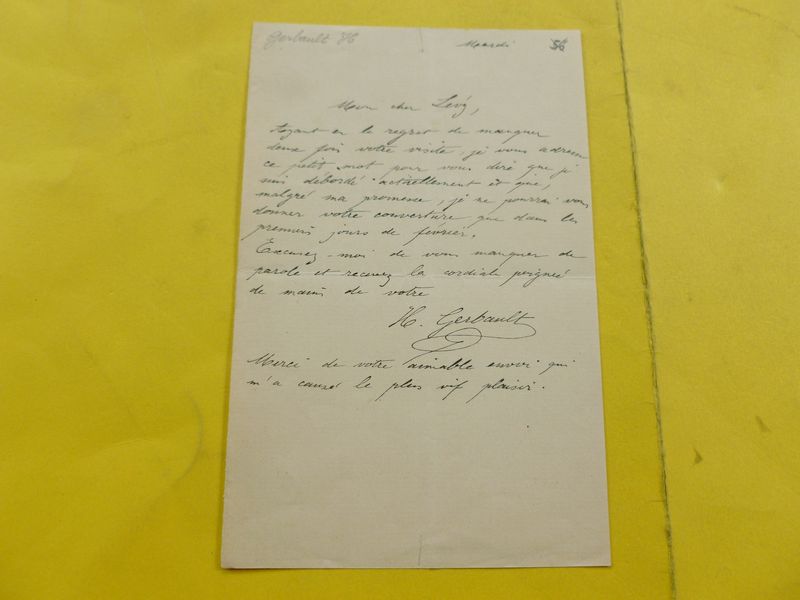 Gerbault H
Mardi
56
Mon cher Levÿ,
Ayant eu le regret de manquer
deux fois votre visite, je vous adresse
ce petit mot pour vous dire que je
suis débordé actuellement et que,
malgré ma promesse, je ne pourrai vous
donner votre couverture que dans les
premiers jours de février.
Excusez-moi de vous manquer de
parole et recevez la cordiale poignée
de mains de votre
H. Gerbault
Merci de votre aimable envoi qui
m'a causé le plus vif plaisir.